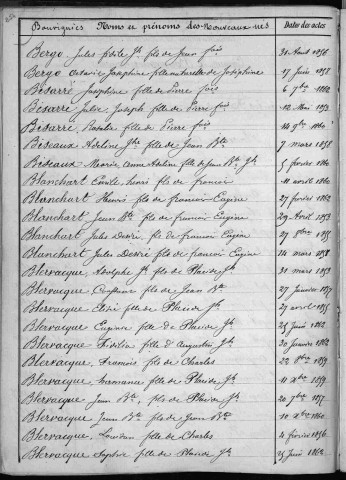 Bourriquiès Noms et prénoms des Nouveaux nés Dates des actes
Bergo, Jules fils de Jean fois 31 Août 1856
Bergo Octavie Josephine fille naturelle de Joséphine 17 Juin 1858
Bésarré, Joséphine fille de Pierre fois 6 7bre 1862
Bésarré Julie, Joseph fille de Pierre 12 Mai 1853
Bésarre, fille de Pierre fois 14 9bre 1860
Béseaux Adeline, Jte fille de Jean Bte 7 mars 1858
Béseaux, Marie Anne Adeline fille de Jean Bte Jh 5 février 1860
Blanchart Emile, henri fils de francois 11 avril 1862
Blanchart Henri fils de francois Eugène 27 février 1862
Blanchart Jean Bte fils de francois Eugène 29 Août 1853
Blanchart Jules Desiré, fils de francois Eugène 27 8bre 1855
Blanchart Jules Desiré fils de francois Eugène 14 mars 1858
Blervacque, Adolphe Jh fils de Placide Jh 31 mars 1853
Blervacque Constance fille de Jean Bte 27 janvier 1857
Blervacque Elisé fille de Placide Jh 27 avril 1855
Blervacque Eugénie fille de Placide Jh 25 juin 1862
Blervacque, fille d'Augustin Jh 30 janvier 1862
Blervacque, francois fils de Charles 22 Xbre 1859
Blervacque, fille de Placide Jh 11 Xbre 1859
Blervacque Jean Bte, fils de Placide Jh 20 7bre 1857
Blervacque Jean Bte fils de Jean Bte 10 Xbre 1860
Blervacque, fille de Charles 4 février 1856
Blervacque Sophie fille de Placide Jh 25 Juin 1862